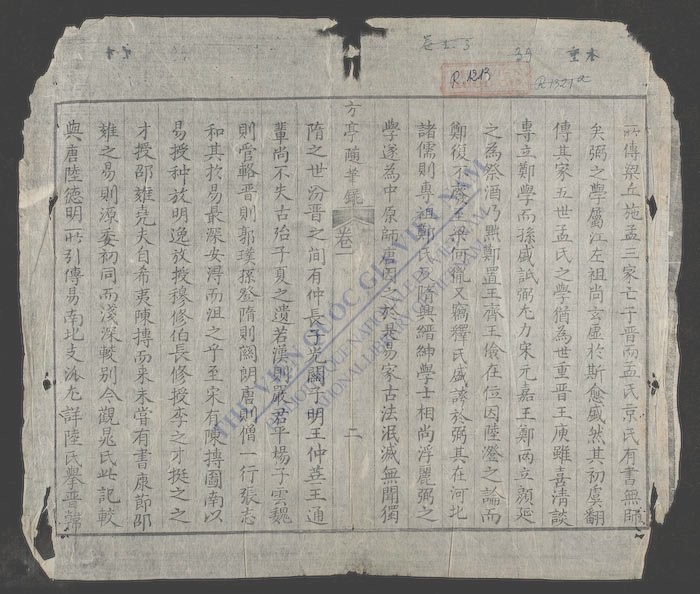 卷 1-3
39
R.1213
R.1321a
所傳梁丘施孟三家亡于晋而孟氏京氏有書無師
矣弼之學屬江左祖尚玄虛於斯愈盛然其初虞翻
傳其家五世孟氏之學猶為世重晋王庾雖喜清談
專立鄭學而孫盛詆弼尤力宋元嘉王鄭兩立顏延
之為祭酒乃黜鄭置王齊王儉在位因陸澄之論而
鄭復不廢至梁何胤又竊釋氏盛誇於弼其在河北
諸儒則專祖鄭氏及隋興縉紳學士相尚浮麗弼之
學遂為中原師唐因之於是易家古法泯滅無聞獨
方亭隨筆錄 卷一 二
隋之世汾晋之間有仲長子光關子明王仲華王通
輩尚不失古殆子夏之遺若漢則嚴君平揚子雲魏
則管輅晋則郭璞孫登隋則關朗唐則僧一行張志
和其扵易最深安得而沮之乎至宋有陳摶圖南以
易授种放明逸放授穆修伯長修授李之才挺之之
才授邵雍堯夫自希夷陳摶而來未嘗有書康節邵
雍之易則源委初同而淺深較別今觀晁氏此記較
與唐陸德明所引傳易南北支派尤詳陸氏擧晋
THƯ VIỆN QUỐC GIA VIỆT NAM
BIBLIOTHÈQUE NATIONALE DU VIETNAM
NATIONAL LIBRARY OF VIETNAM